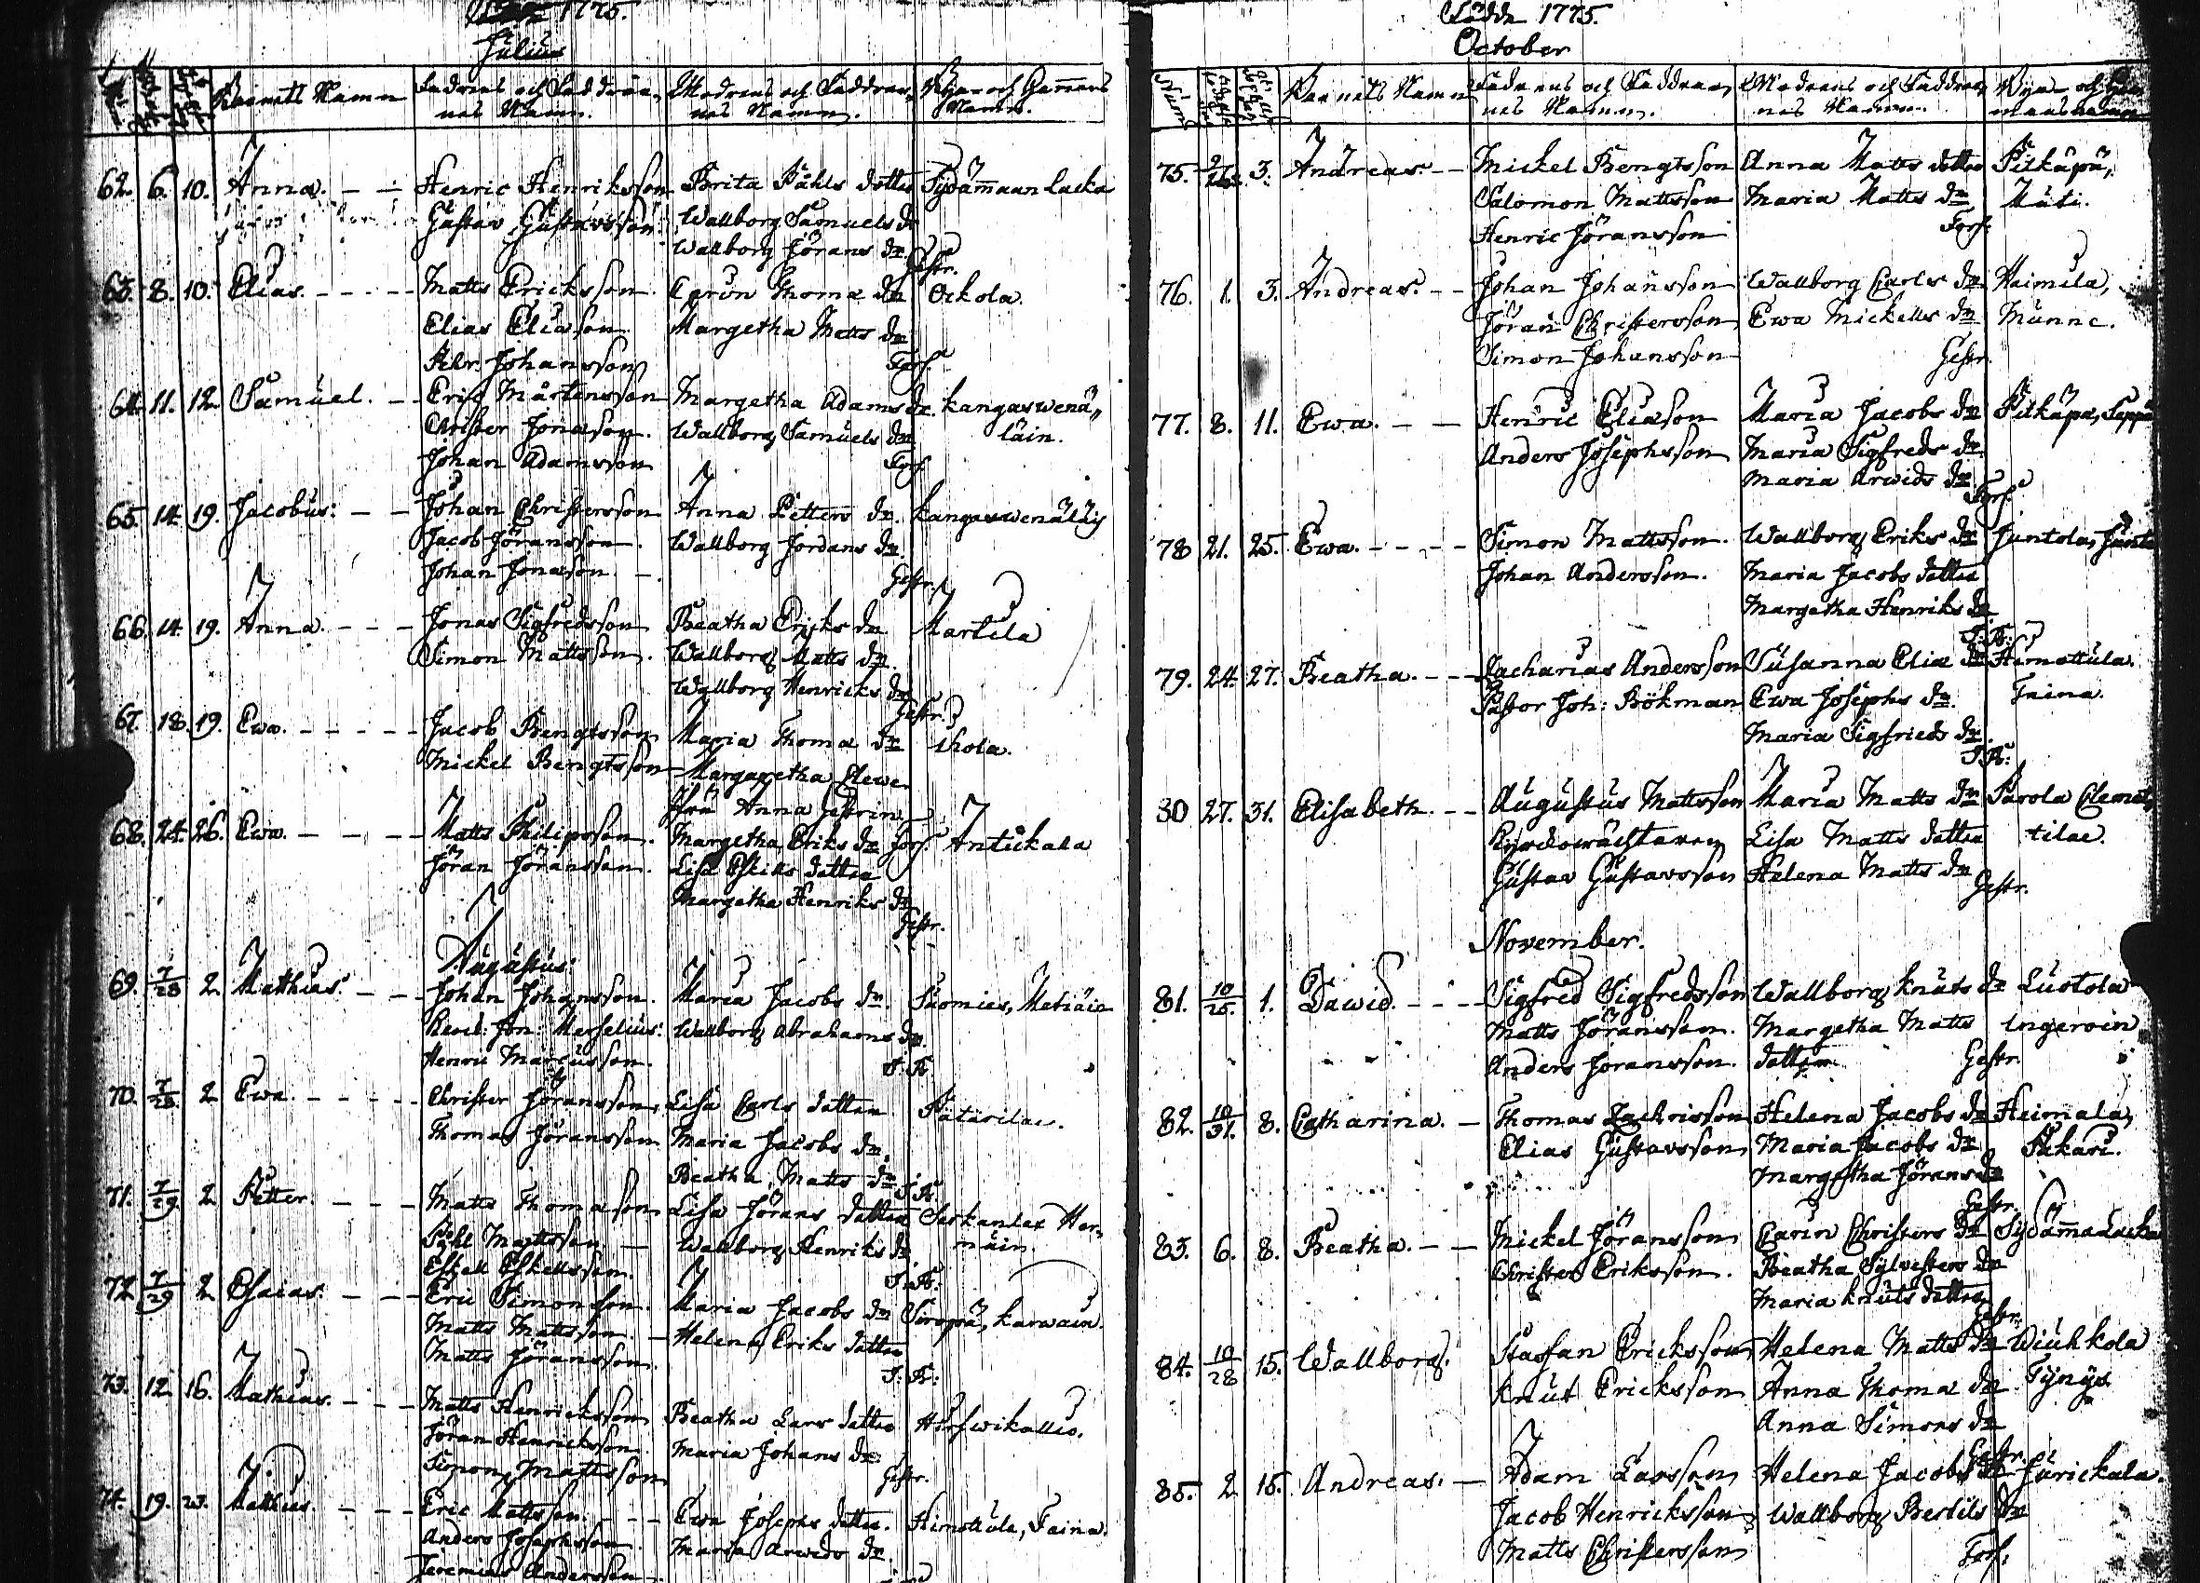 1775.
Julius
Barnets Namn
Fadrens och Faddrar,
nes Namn.
Modrens och Faddrar,
nes Namn.
Byar och
Namn.
62. 6. 10. Anna. Henric Henriksson Brita Påhls dotter Sydämaanlacka
Gustav Gustavsson Wallborg Samuels dr
Wallborg Jörans dr.
Gestr.
63. 8. 10. Elias. Matts Ericksson Carin Thoma dr Ockola.
Elias Eliasson Margetha Matts dr
Abr. Johansson Forss.
64. 11. 12. Samuel. Eric Mårtensson Margetha Adams dr. Kangaswenä„
Christer Jonasson. Wallborg Samuels dr läin.
Johan Adamsson Forss.
65. 14. 19. Jacobus. Johan Christersson Anna Petters dr. Kangaswenäläis
Jacob Jöransson. Wallborg Jordans dr.
Johan Jonasson Gestr.
66. 14. 19. Anna. Jonas Sigfredsson Beatha Eriks dr Martila
Simon Mattsson. Wallborg Matts dr.
Wallborg Henricks dr
Gestr.
67. 18. 19. Ewa. Jacob Bengtsson Maria Thoma dr Ihola.
Mickel Bengtsson Margaretha Clewe
Fru Anna Gestrin
68. 24. 26. Ewa. Matts Philipsson. Margetha Eriks dr Forss. Antikala
Jöran Jöransson. Lisa Eskills dotter
Margetha Henriks dr
Gestr.
Augustus.
69. 7/28 2 Matthias. Johan Johansson. Maria Jacobs dr. Suomies, Matiäin
Jon: Marselius: Wallborg Abrahams dr.
Henric Marcusson. J. B.
70. 7/28 2 Ewa. Christer Jöransson, Lisa Carls dotter
Thomas Jöransson Maria Jacobs dr.
Beatha Matts dr J. B.
71. 7/29 2 Petter. Matts Thomasson Lisa Jörans dotter Serkanlax Her-
Påhl Mattsson. Wallborg Henriks dr mäin.
Eskell Eskellsson. J. B.
72. 7/29 2 Esaias. Eric Simonsson. Maria Jacobs dr Siropä, Karwain.
Matts Mattsson. Helena Eriks dotter
Matts Jöransson. J. B.
73. 12 16. Mathias. Matts Henricksson Beatha Lars dotter Hirswikallio.
Jöran Henricksson Maria Johans dr.
Simon Mattsson Gestr.
74. 19. Matthias. Eric Mattsson. Ewa Josephs dotter. Himottula, Taina.
Anders Josephsson Maria Arwids dr.
Jeremias Andersson
Födde 1775.
October
Barnets Namn
Fadrens och Faddrar,
nes Namn.
Modrens och Faddrar,
nes Namn.
Byar och
75. 3. Andreas. Mickel Bengtsson Anna Matts dotter Pitkäpä,
Salomon Mattsson Maria Matts dr Mäki.
Henric Jöransson Forss.
76. 1. 3. Andreas. Johan Johansson Wallborg Carls dr Haimila,
Jöran Christersson Ewa Mickells dr Munne.
Simon Johansson Gestr.
77. 8. 11. Ewa. Henric Eliasson Maria Jacobs dr Pitkäpä, Seppä
Anders Josephsson Maria Sigfreds dr.
Maria Arwids dr.
Forss.
78 21. 25. Ewa. Simon Mattsson. Wallborg Eriks dr Juntola,
Johan Andersson. Maria Jacobs dotter
Margetha Henriks dr
J. B.
79. 24. 27. Beatha. Zacharias Andersson Susanna Eliæ dr Himottula.
Pastor Joh: Bökman Ewa Josephs dr. Taina.
Maria Sigfrieds dr.
J. B.
80 27. 31. Elisabeth. Augustus Mattsson Maria Matts dr Parola Clemet,
Lisa Matts dotter tilae.
Gustav Gustavsson Helena Matts dr
Gestr.
November.
81. 10/25. 1. Dawid. Sigfred Sigfredsson Wallborg Knuts dr Lustola
Matts Jöransson. Margetha Matts Ingeroin
Anders Joransson. dotter Gestr.
82. 10/31. 8. Catharina. Thomas Zachrisson Helena Jacobs dr Heimala,
Elias Gustavsson Maria Jacobs dr Pukari.
Margetha Jörans dr
Gestr.
83. 6. 8. Beatha. Mickel Jöransson Carin Christers dr Sydämalacka
Christer Eriksson. Beatha Sylvesters dr
Maria Knuts dotter
Gestr.
84. 10/28 15. Wallborg. Staffan Ericksson Helena Matts dr Wiuhkola
Knut Ericksson Anna Thoma dr Tynys
Anna Simons dr
Gestr.
85. 2 15. Andreas. Adam Larsson Helena Jacobs dr Jurickala.
Jacob Henricksson Wallborg Bertils dr
Matts Christersson Forss.